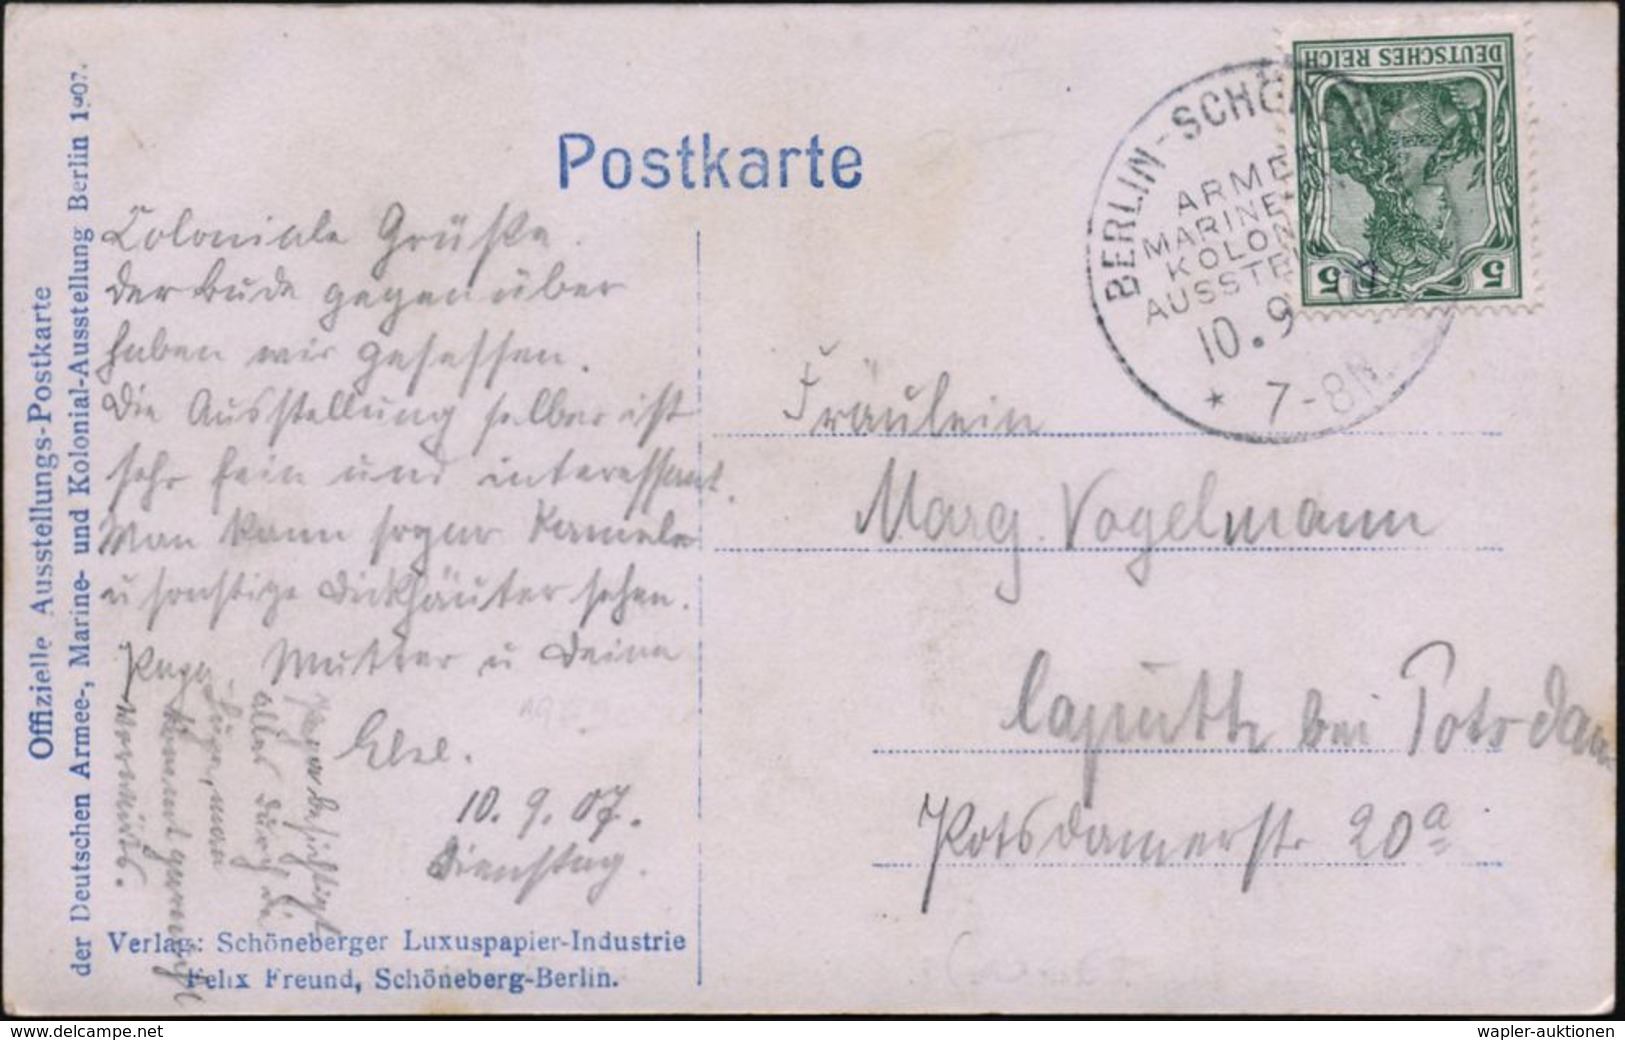 Offizielle Ausstellungs-Postkarte
der Deutschen Armee-, Marine- und Kolonial-Ausstellung Berlin 1907.
Postkarte
Coloniale Grüße.
Der Bude gegenüber
haben wir gesessen.
Die Ausstellung selber ist
sehr fein und interessant.
Man kann sogar Kamele
u sonstige Dickhäuter sehen.
Mutter u Deine
Else.
10. 9. 07.
Dienstag.
Papa besichtigt
alles durch die
Lupe, man
kommt garnicht
vorwärts.
Verlag: Schöneberger Luxuspapier-Industrie
Felix Freund, Schöneberg-Berlin.
DEUTSCHES REICH
5 5
BERLIN-SCHÖ
ARMEE
MARINE
KOLON
AUSSTE
10.9 07
* 7-8N.
Fräulein
Marg. Vogelmann
Caputh bei Potsdam
Potsdamerstr. 20a
www.delcampe.net
wapler-auktionen